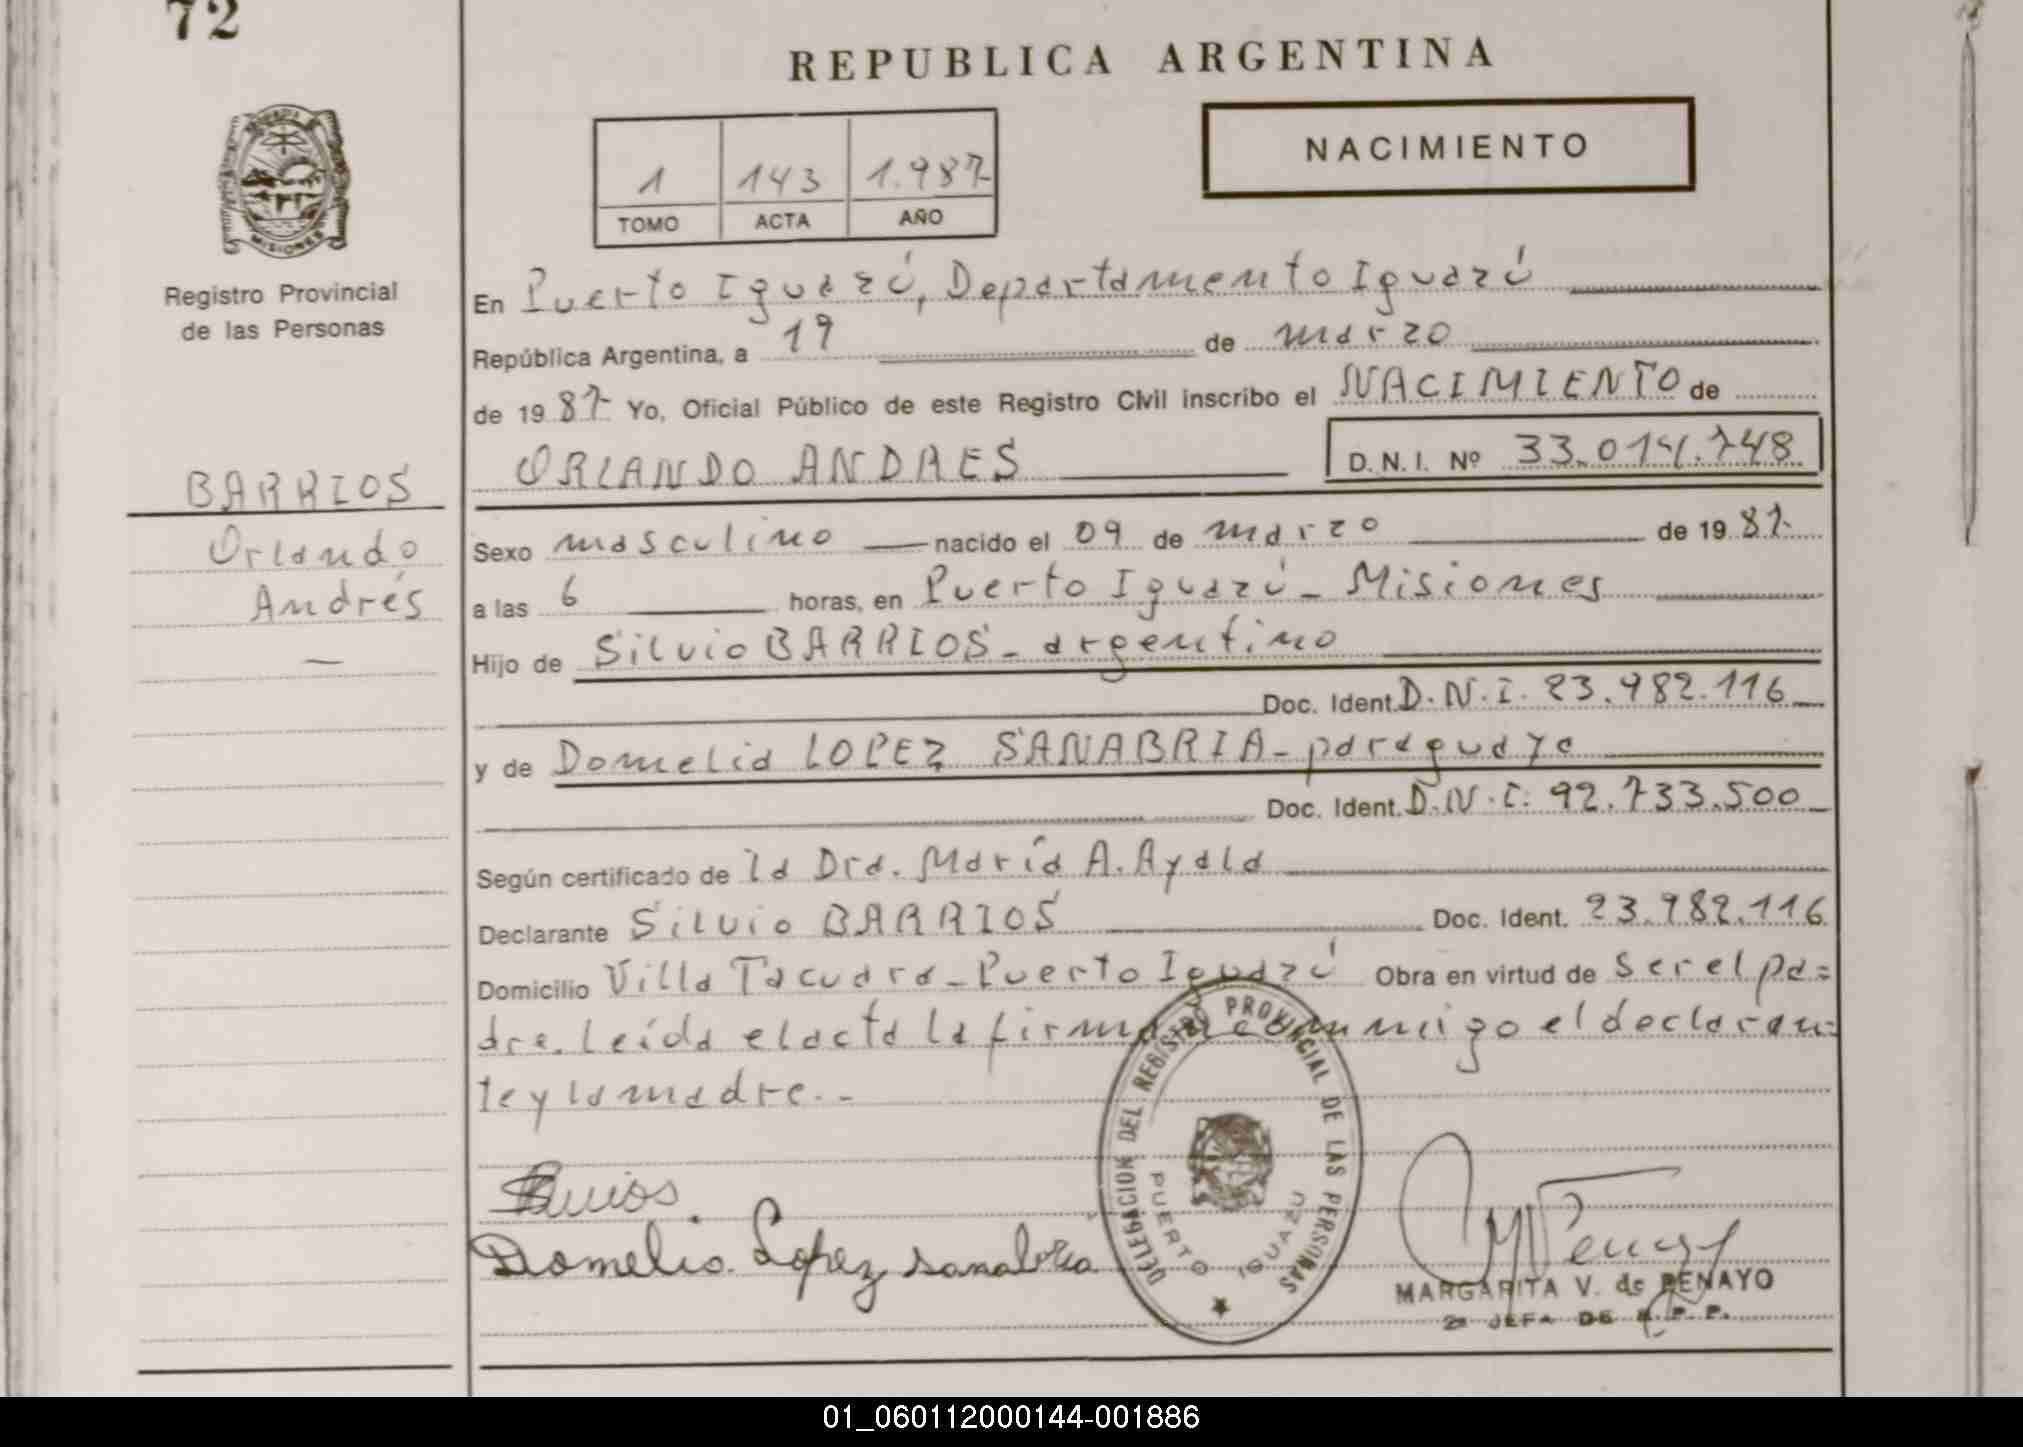 72
REPUBLICA ARGENTINA
NACIMIENTO
1 143 1.987
TOMO ACTA AÑO
MISIONES
Registro Provincial
de las Personas
En Puerto Iguazú, Departamento Iguazú
República Argentina, a 19 de marzo
de 1987 Yo, Oficial Público de este Registro Civil inscribo el NACIMIENTO de
ORLANDO ANDRES D.N.I. Nº 33.014.748
BARRIOS
Orlando
Andrés
Sexo masculino nacido el 09 de marzo de 1987
a las 6 horas, en Puerto Iguazú - Misiones
Hijo de Silvio BARRIOS - argentino
Doc. Ident. D.N.I. 23.982.116
y de Domelia LOPEZ SANABRIA - paraguaya
Doc. Ident. D.N.I. 92.733.500
Según certificado de la Dra. María A. Ayala
Declarante Silvio BARRIOS Doc. Ident. 23.982.116
Domicilio Villa Tacuara - Puerto Iguazú Obra en virtud de ser el pa=
dre. Leída el acta la firman conmigo el declaran=
te y la madre. -
DELEGACION DEL REGISTRO PROVINCIAL DE LAS PERSONAS
PUERTO IGUAZU
Domelia Lopez Sanabria
MARGARITA V. de PENAYO
2ª JEFA DE R.P.P.
01_060112000144-001886